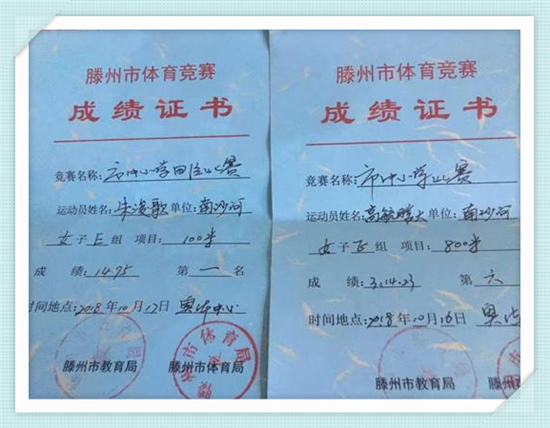 滕州市体育竞赛
成绩证书
竞赛名称:市中小学田径比赛
运动员姓名:朱凌歌 单位:南沙河
女子E组 项目:100米
成 绩:14.95 第一名
时间地点:2018年10月12日 奥体中心
滕州市教育局 滕州市体育局
滕州市体育竞赛
成绩证书
竞赛名称:市中小学比赛
运动员姓名: 单位:南沙河
女子E组 项目:800米
成 绩:3:14.23 第六
时间地点:2018年10月16日 奥体
滕州市教育局